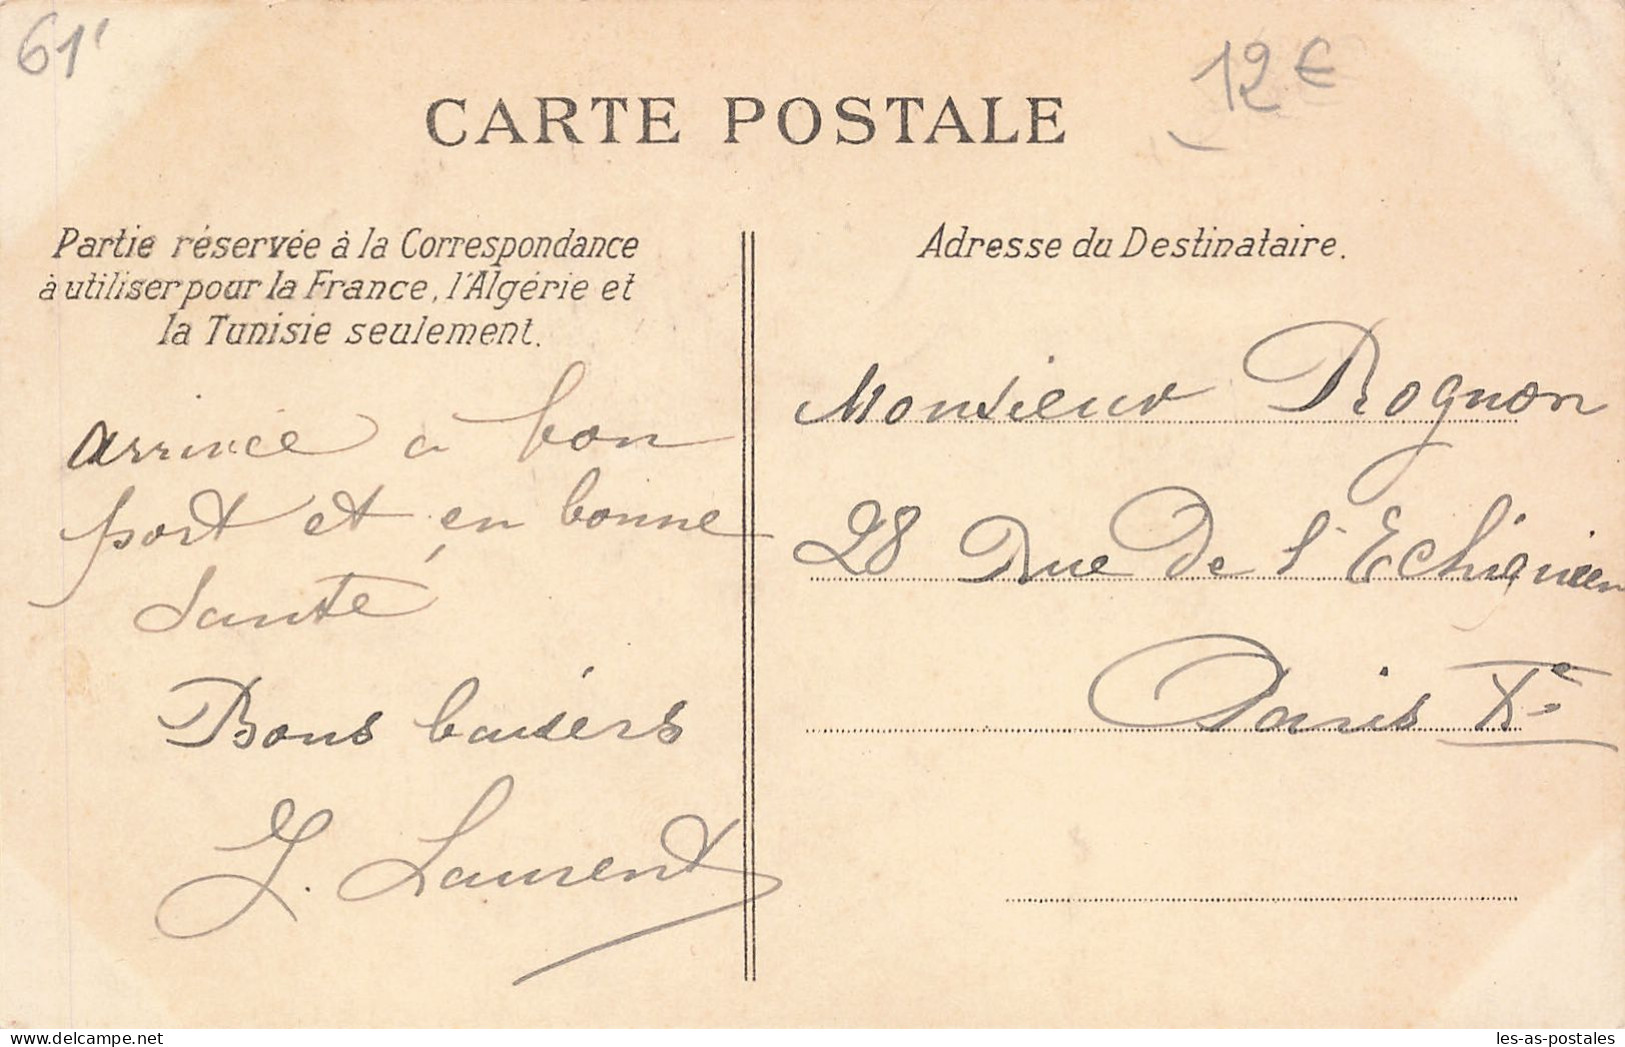 61'
12 €
CARTE POSTALE
Partie réservée à la Correspondance
à utiliser pour la France, l'Algérie et
la Tunisie seulement.
arrivée a bon
port et en bonne
santé
Bons baisers
J. Laurent
Adresse du Destinataire.
Monsieur Rognon
28 Rue De l'Echiquier
Paris Xe
delcampe.net
les-as-postales